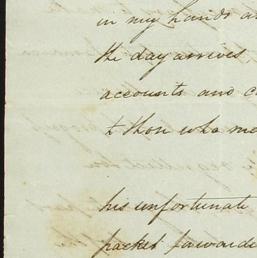 in my hands a
the day arrives
accounts and c
t thou who me
his unfortunate
packet forwarde